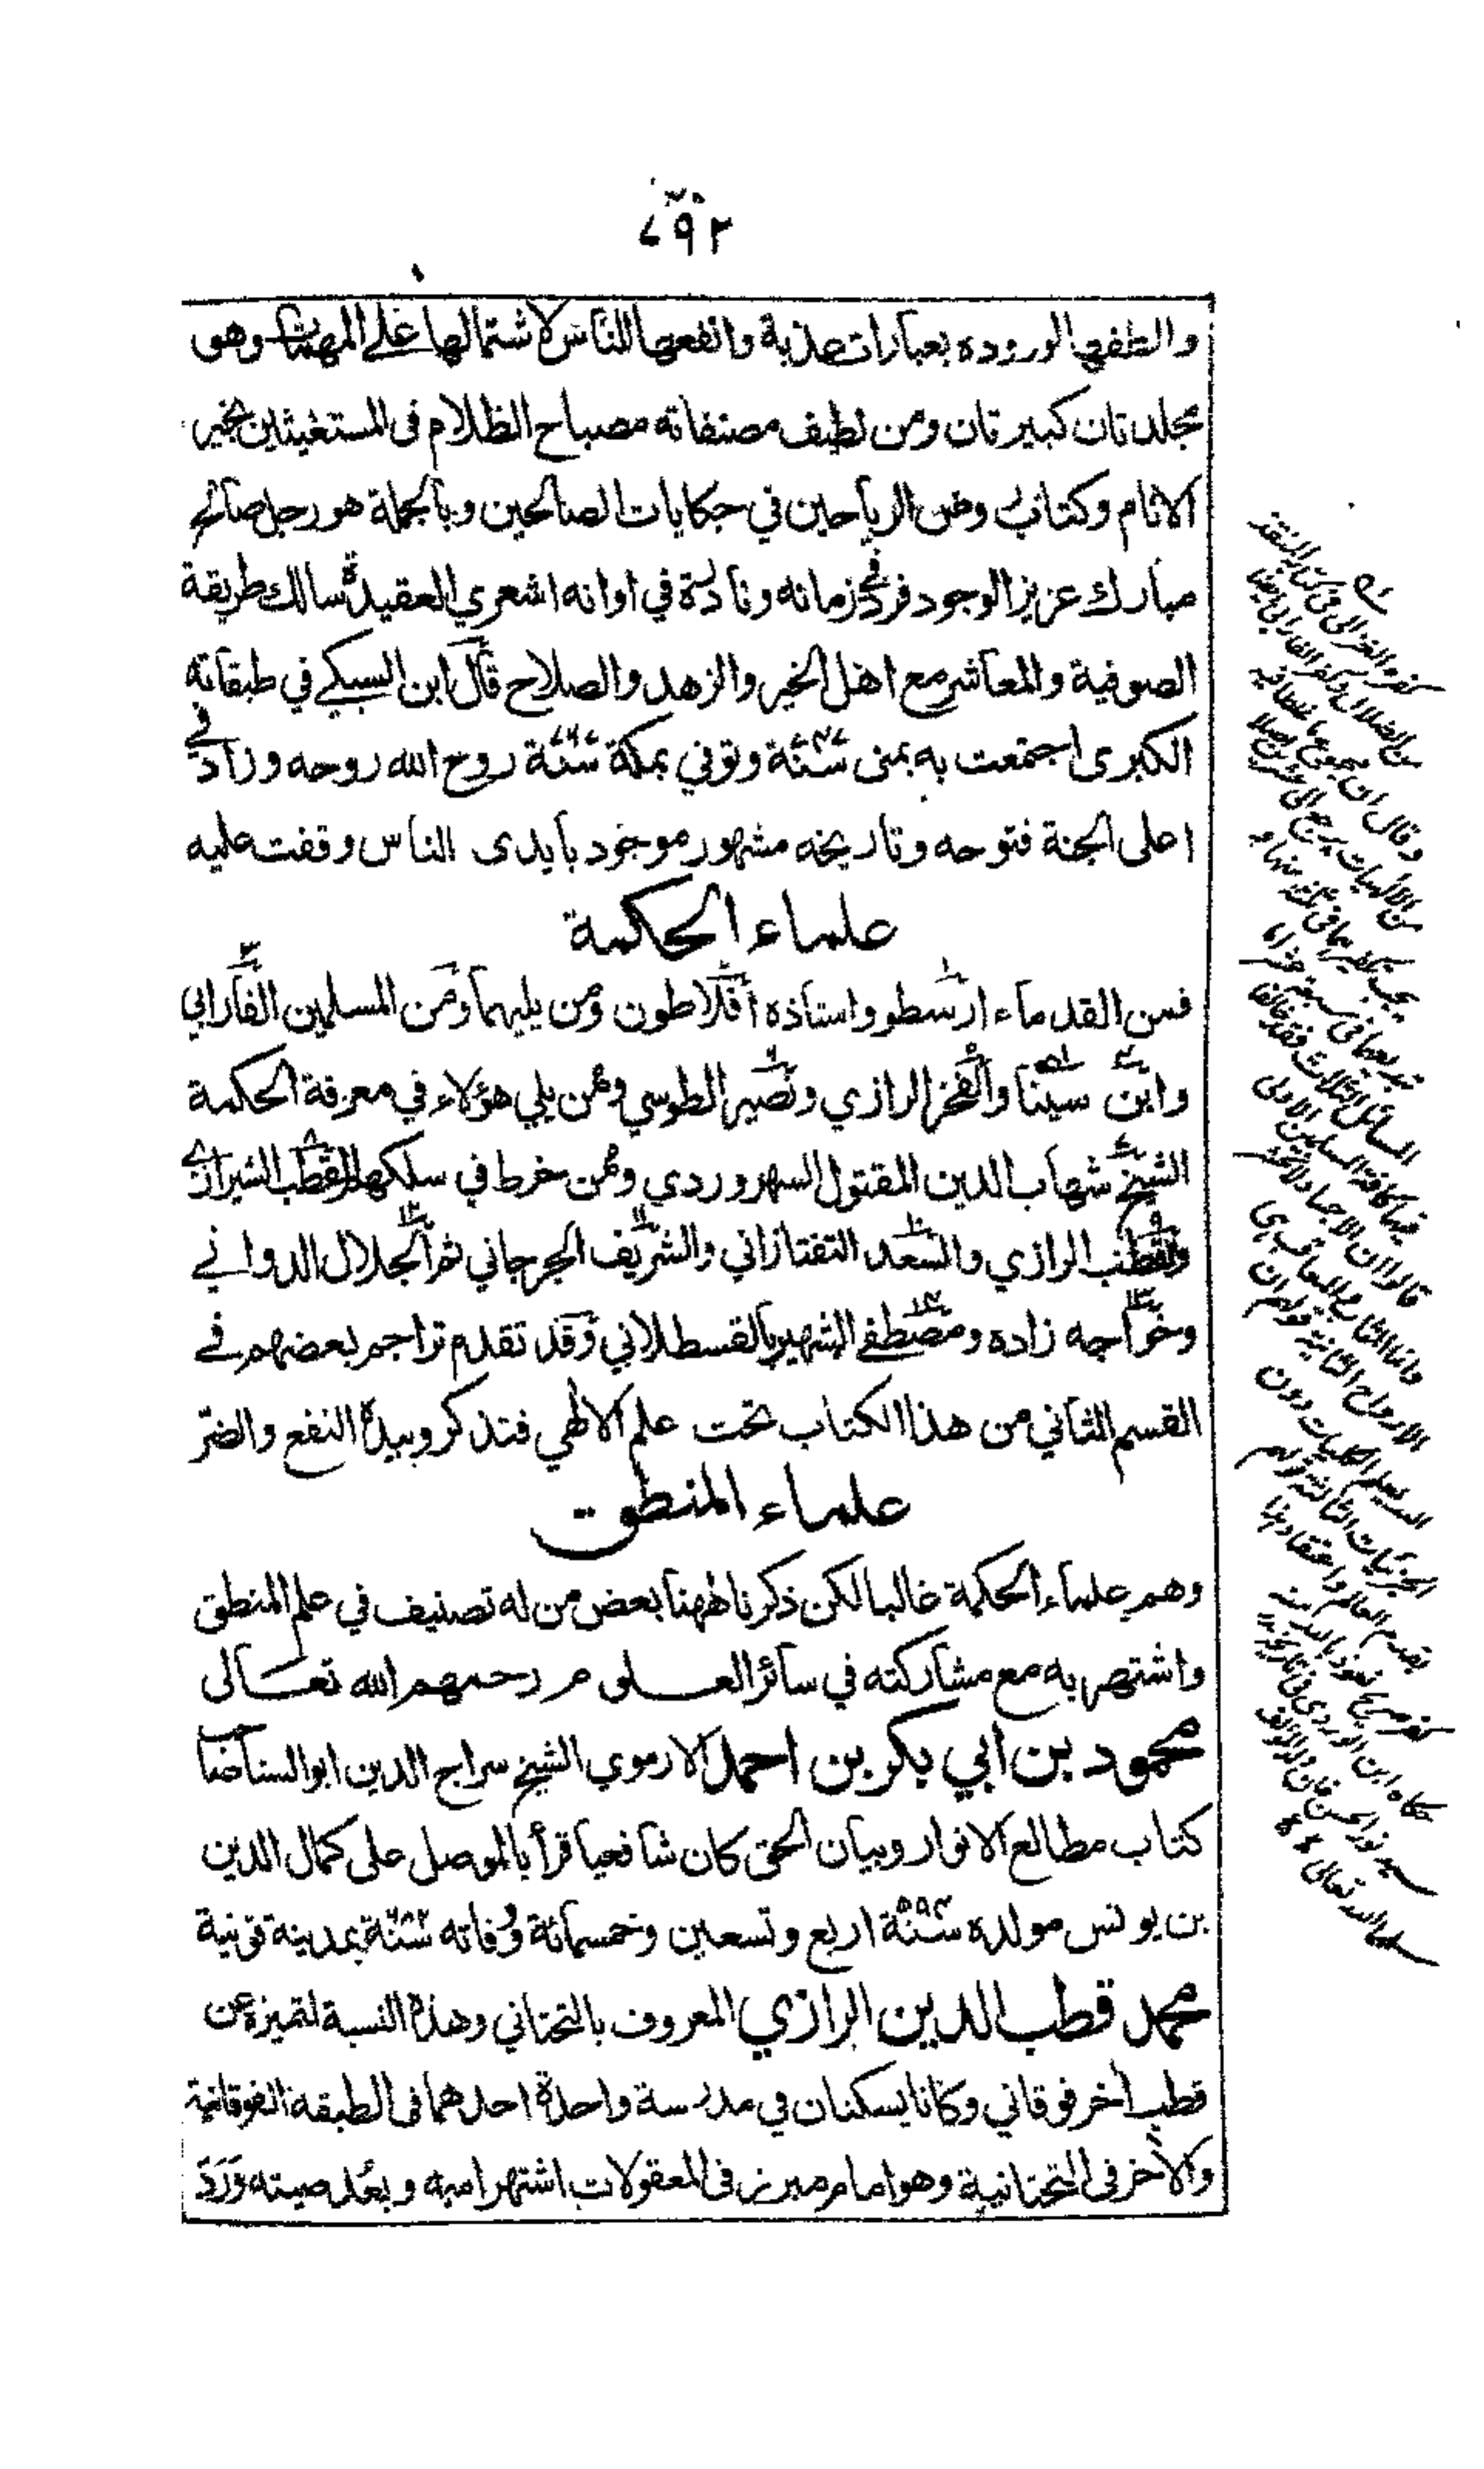 ٧٩٢
والطفها لوروده بعبارات عذبة وانفعها للناس لاشتمالها على المهمات وهو
مجلدتان كبيرتان ومن لطيف مصنفاته مصباح الظلام فى المستغيثين بخير
الانام وكتاب روض الرياحين في حكايات الصالحين وبالجملة هو رجل صالح
مبارك عزيز الوجود فرد في زمانه ونادرة في اوانه اشعري العقيدة سالك طريقة
الصوفية والمعاشر مع اهل الخير والزهد والصلاح قال ابن السبكي في طبقاته
الكبرى اجتمعت به بمنى سنة وتوفي بمكة سنة روح الله روحه وزاد في
اعلى الجنة فتوحه وتاريخه مشهور موجود بايدى الناس وقفت عليه
علماء الحكمة
فمن القدماء ارسطو واستاذه افلاطون ومن يليهما ومن المسلمين الفارابي
وابن سينا والفخر الرازي ونصير الطوسي وممن يلي هؤلاء في معرفة الحكمة
الشيخ شهاب الدين المقتول السهروردي وممن خرط في سلكهم القطب الشيرازي
والقطب الرازي والسعد التفتازاني والشريف الجرجاني ثم الجلال الدواني
وخواجه زاده ومصطفى الشهير بالقسطلاني وقد تقدم تراجم بعضهم في
القسم الثاني من هذا الكتاب تحت علم الالهي فتذكر وبيده النفع والضر
علماء المنطق
وهم علماء الحكمة غالبا لكن ذكرنا ههنا بعض من له تصنيف في علم المنطق
واشتهر به مع مشاركته في سائر العلوم رحمهم الله تعالى
محمود بن ابي بكر بن احمد الارموي الشيخ سراج الدين ابو الثنا صاحب
كتاب مطالع الانوار وبيان الحق كان شافعيا قرأ بالموصل على كمال الدين
بن يونس مولده سنة ٥٩٤ اربع وتسعين وخمسمائة وفاته سنة بمدينة قونية
محمد قطب الدين الرازي المعروف بالتحتاني وهذه النسبة لتميزه عن
قطب اخر فوقاني وكانا يسكنان في مدرسة واحدة احدهما فى الطبقة الفوقانية
والآخر فى التحتانية وهو امام مبرز فى المعقولات اشتهر اسمه وبعد صيته ورد
وقال ان مجموع ما
من الالهيات يرجع الى عشرين اصلا
يجب تكفيرهما فى ثلثة منها و
المسائل الثلاث فقد خالفا
فيها كافة المسلمين الاولى
قالوا ان الاجساد لا تحشر
وانما المثاب والمعاقب هى
الارواح الثانية قولهم ان
الله يعلم الكليات دون
الجزئيات الثالثة قولهم
بقدم العالم واعتقاد هذا
كفر صريح نعوذ بالله منه
حكاه ابن الوردى فى تاريخه
سيد نور الحسن خان
سلمه الله تعالى